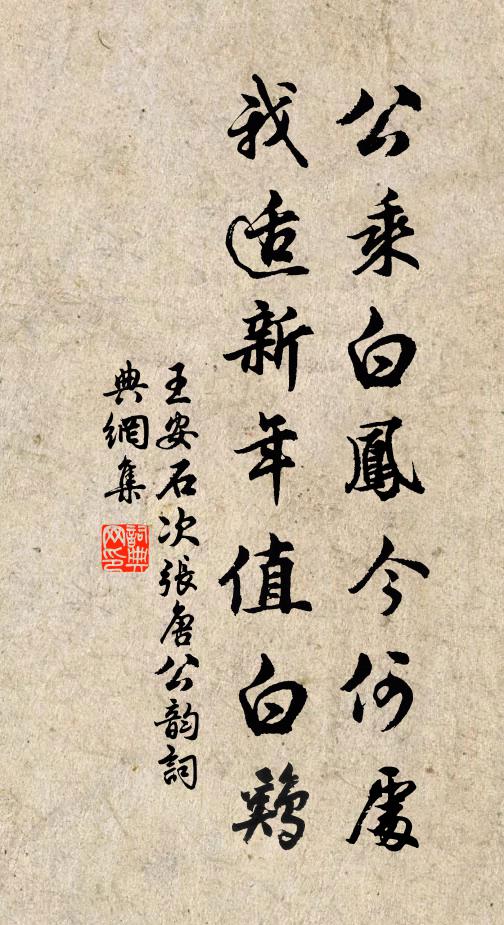 公乘白鳳今何處
我适新年值白鷄
王安石次張唐公韵詞
典網集
詞典網印